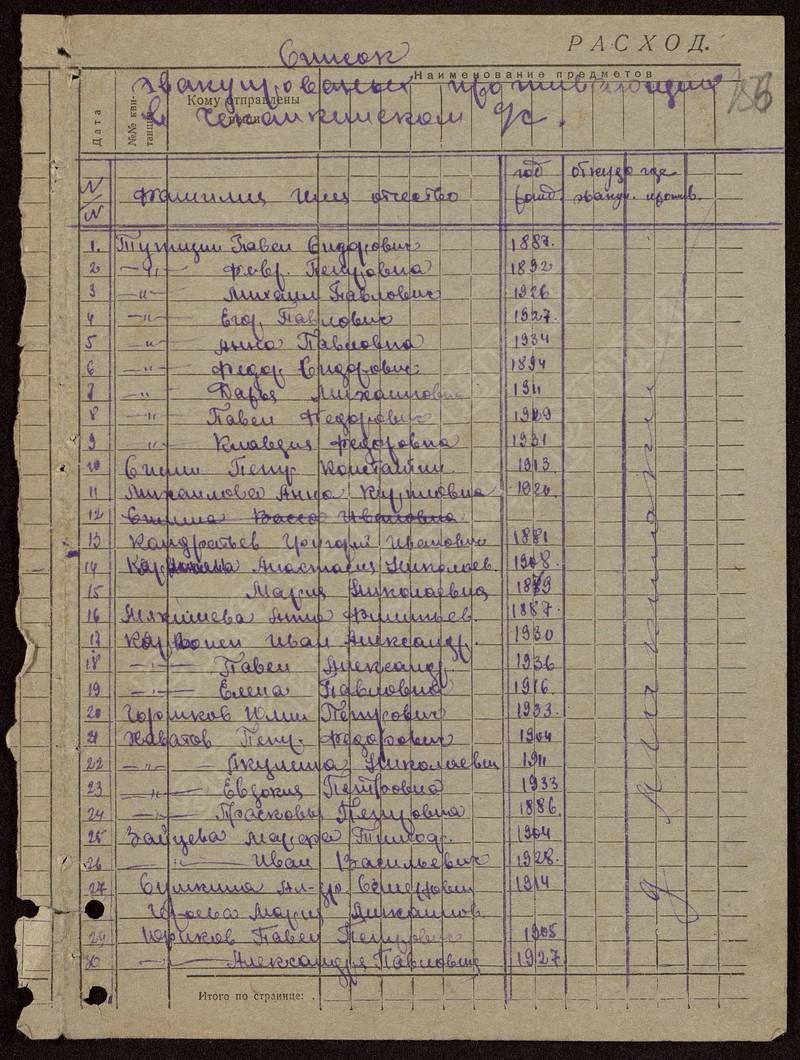 РАСХОД.
Список
Наименование предметов
эвакуированых проживающих
Кому отправлены
в с/с.
Дата
№№ квитанции
156
N/N фамилия имя отчество год рожд. откуда где эваку. прожив.
1. Павел Сидорович 1887.
2 —"— Февр. Петровна 1892
3 —"— Михаил Павлович 1926
4 —"— Егор Павлович 1927.
5 —"— Анна Павловна 1934
6 —"— Федор Сидорович 1894
7 —"— Дарья Михаиловна 1911
8 —"— Павел Федорович 1929
9 —"— Клавдия Федоровна 1931
10 Петр Константин. 1913
11 Михаилова Анна Кириловна 1920.
12 Васса Ивановна
13 Кандратьев Григорий Иванович 1881
14 Анастасия Николаев. 1908.
15 Мария Николаевна 1879
16 Анна 1887.
17 Иван Александр. 1930
18 —"— Павел Александр. 1936
19 —"— Елена Павловна 1916.
20 Горшков Юлий Петрович 1933.
21 Хаватов Петр Федорович 1904
22 —"— Акулина Николаевна 1911
23 —"— Евдокия Петровна 1933
24 —"— Прасковья Петровна 1886.
25 Зайцева Марфа Тимоф. 1904
26 —"— Иван Васильевич 1928.
27 1914
Мария Михаилов.
29 Юриков Павел Петрович 1905
30 —"— Александра Павловна 1927.
Итого по странице: